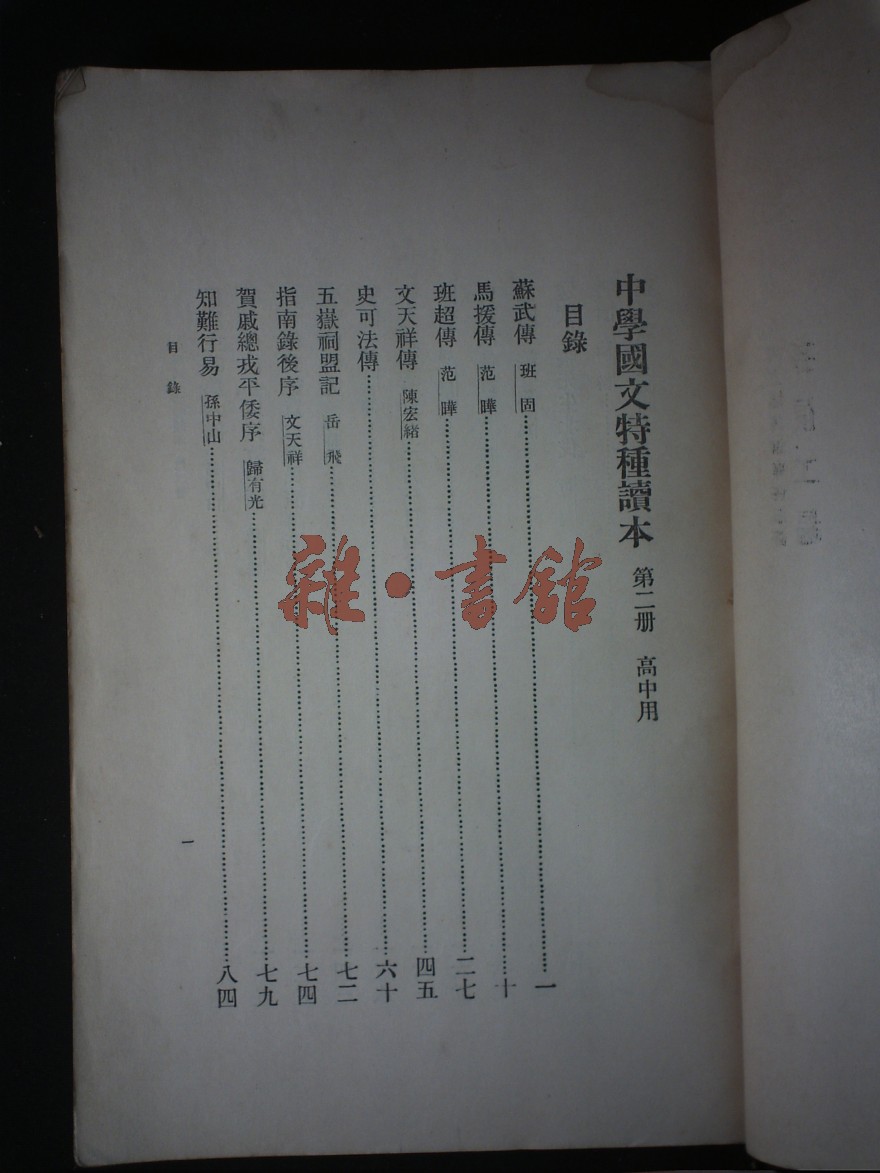 中學國文特種讀本 第二册 高中用
目錄
蘇武傳 班固 一
馬援傳 范曄 十
班超傳 范曄 二七
文天祥傳 陳宏緒 四五
史可法傳 六十
五嶽祠盟記 岳飛 七二
指南錄後序 文天祥 七四
賀戚總戎平倭序 歸有光 七九
知難行易 孫中山 八四
目錄
一
雜·書館